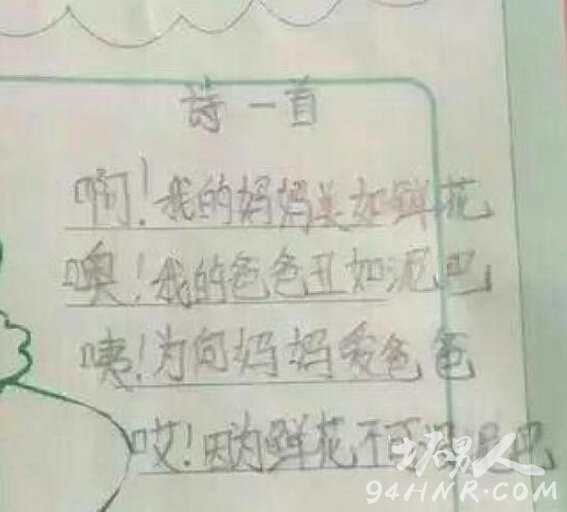 诗一首
啊!我的妈妈美如鲜花
噢!我的爸爸丑如泥巴
咦!为何妈妈爱爸爸
哎!因为鲜花不可 泥巴
坏男人
94HNR.COM